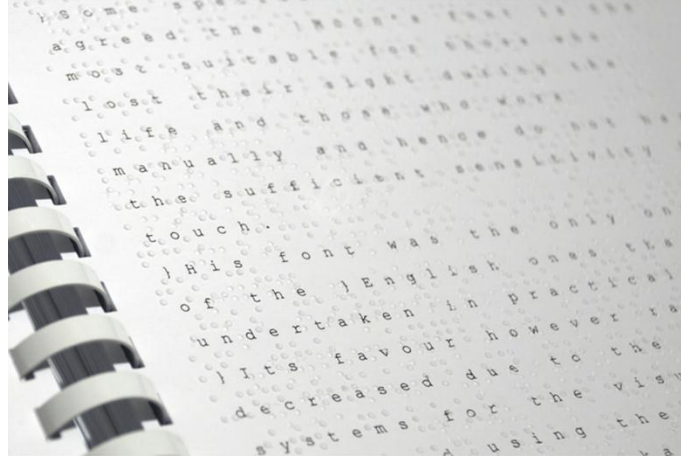 }Some spe
agreed the }Moon's font is the
most suitable for those who
lost their sight during the
life and those who work
manually and hence do not
the sufficient sensitivity
touch.
}His font was the only on
of the }English ones tha
undertaken in practical
}Its favour however ra
decreased due to the
systems for the visu
using the